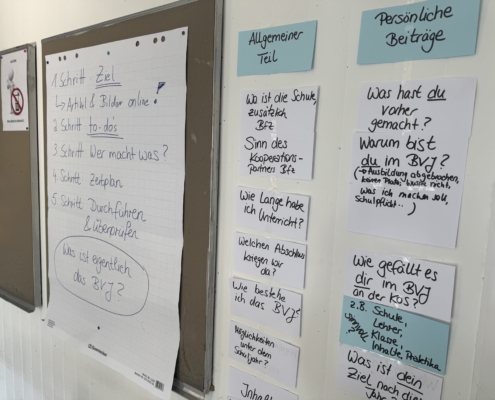 1 Schritt Ziel
↳ Artikel & Bilder online!
2 Schritt to-dos
3 Schritt Wer macht was?
4 Schritt Zeitplan
5 Schritt Durchführen
& überprüfen
Was ist eigentlich
das BVJ?
Allgemeiner
Teil
Wo ist die Schule,
zusätzlich
Bfz
Sinn des
Kooperations-
partners Bfz
Wie Lange habe
ich Unterricht?
Welchen Abschluss
kriegen wir
da?
Wie bestehe
ich das BVJ?
Möglichkeiten
unter dem
Schuljahr?
Inhalt
Persönliche
Beiträge
Was hast du
vorher
gemacht?
Warum bist
du im BVJ?
(→ Ausbildung abgebrochen,
keinen Platz, wusste nicht,
was ich machen soll,
Schulpflicht..)
Wie gefällt es
dir im BVJ
an der KoS?
z.B. Schule,
Lehrer,
Klasse,
Inhalte, Praktika
Was ist dein
Ziel nach dem
Jahr?